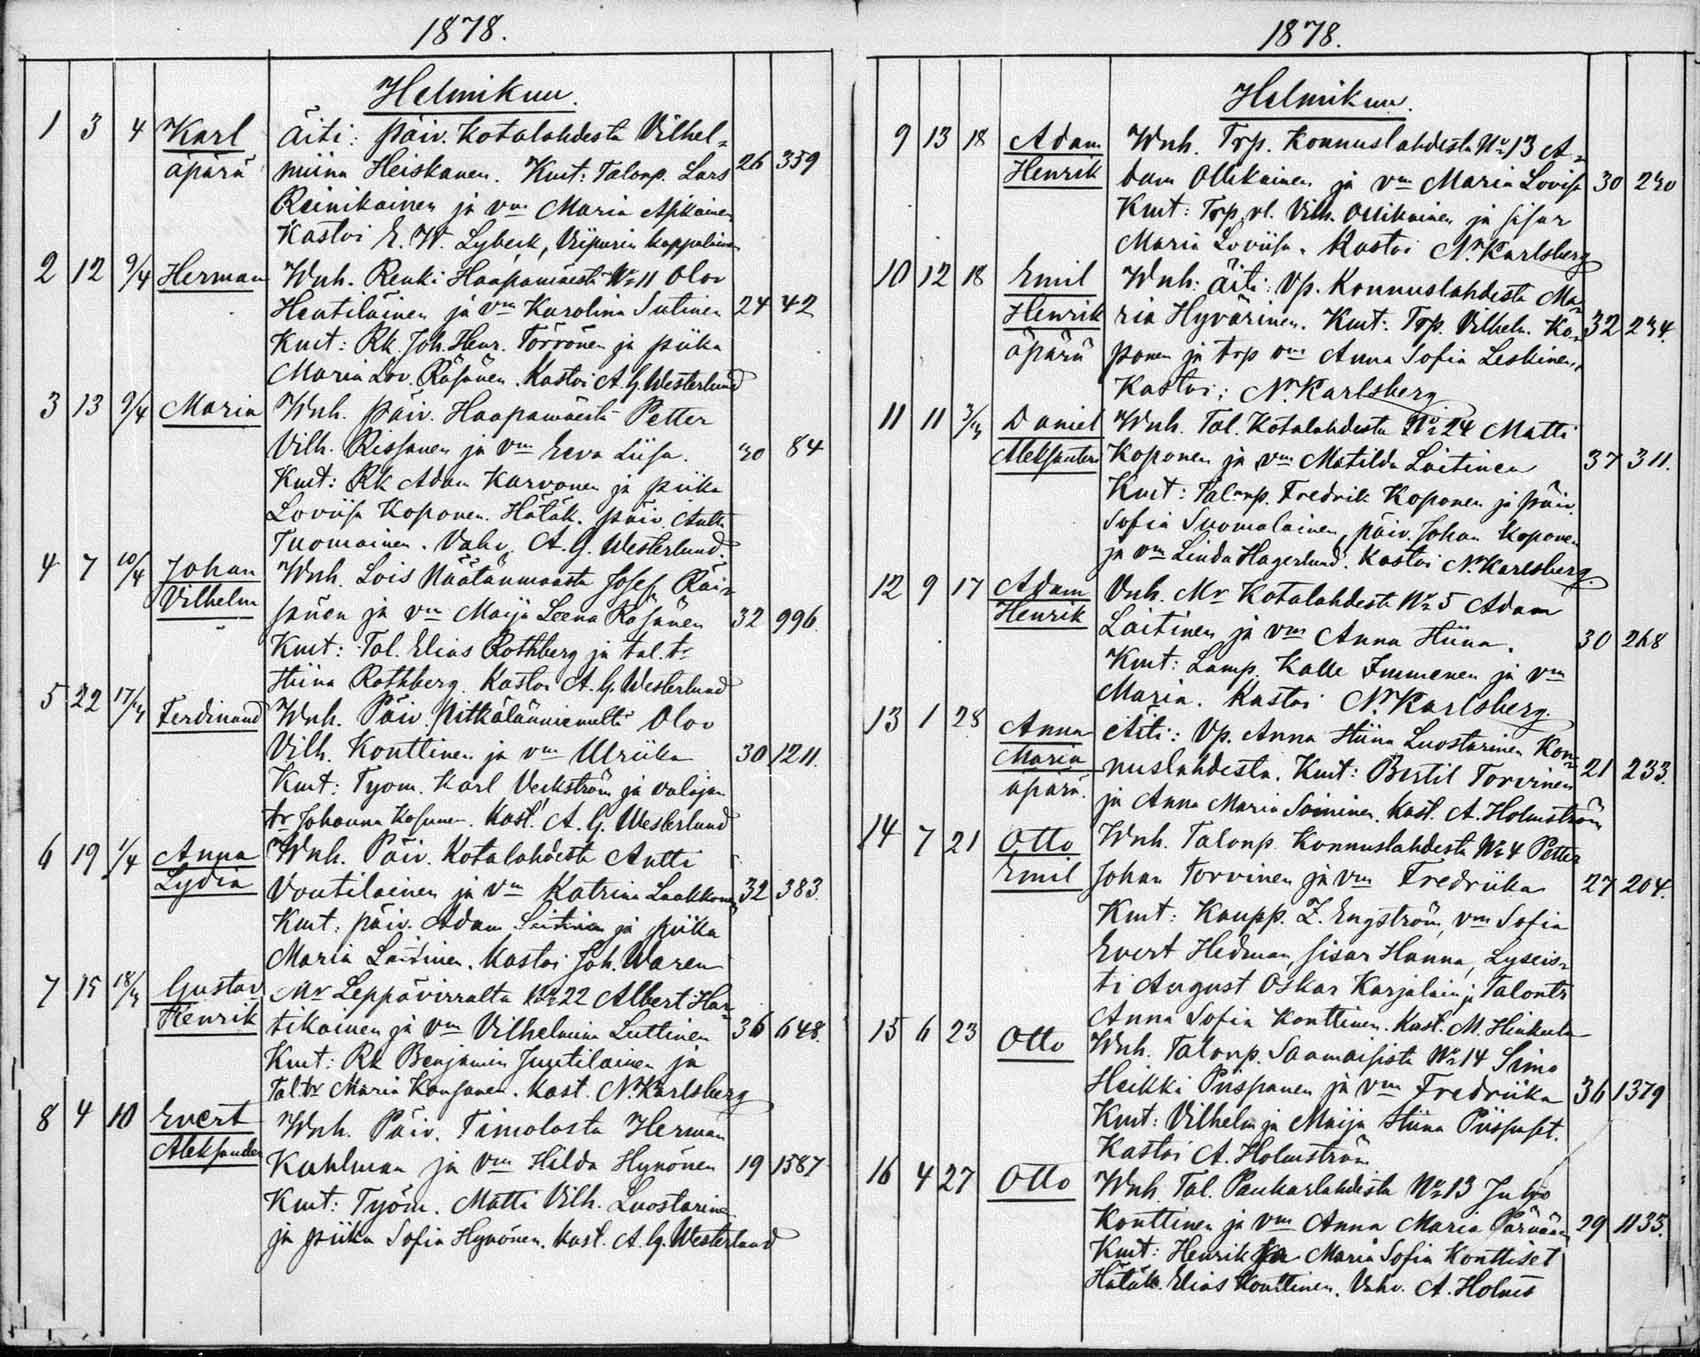 1878.
Helmikuu.
1 3 4 Karl Äiti: päiv. Kotalahdesta Vilhel-
äpärä miina Heiskanen. Kmt: Talonp. Lars 26 359
Reinikainen ja vm Maria Asikainen
Kastoi E. W. Lybeck, Viipurin kappalainen
2 12 9/4 Herman Wnh. Renki Haapamäestä No 11 Olov
Hentiläinen ja vm Karolina Sutinen 24 42
Kmt: Rk. Joh. Henr. Törrönen ja piika
Maria Lov. Räsänen. Kastoi A. G. Westerlund
3 13 9/4 Maria Wnh. päiv. Haapamäestä Petter
Vilh. Rissanen ja vm Eeva Liisa. 30 84
Kmt: Rk Adam Karvonen ja piika
Loviisa Koponen. Hätäk. päiv. Antti
Tuomainen. Vahv. A. G. Westerlund.
4 7 10/4 Johan Wnh. Lois Näätänmaasta Josef Räi-
Vilhelm sänen ja vm Maija Leena Räsänen 32 996
Kmt: Tal. Elias Rothberg ja tal. tr
Hiina Rothberg. Kastoi A. G. Westerlund
5 22 17/4 Ferdinand Wnh. Päiv. Pitkälänniemeltä Olov
Vilh. Konttinen ja vm Ulriika 30 1211.
Kmt: Tyom. Karl Veckström ja valajan
tr Johanna Kosunen. Kast. A. G. Westerlund
6 19 1/4 Anna Wnh. Päiv. Kotalahdesta Antti
Lydia Voutilainen ja vm Katrina Laakkonen 32 383.
Kmt: päiv. Adam ja piika
Maria Laitinen. Kastoi Joh. Waren
7 15 18/4 Gustav Mr Leppävirralta No 22 Albert Har-
Henrik tikainen ja vm Vilhelmina Luttinen 36 648.
Kmt: Rk Benjamin Juntilainen ja
Tal. tr Maria Konsanen. Kast. N. Karlsberg
8 4 10 Evert Wnh. Päiv. Timolasta Herman
Aleksander Kuhlman ja vm Hilda Hynönen 19 1587
Kmt: Tyom. Matti Vilh. Luostarinen
ja piika Sofia Hynönen. Kast. A. G. Westerlund
1878.
Helmikuu.
9 13 18 Adam Wnh. Trp. Konnuslahdesta No 13 A-
Henrik dam Ollikainen ja vm Maria Lovisa 30 230
Kmt: Trp. vl. Vilh. Ollikainen ja sisar
Maria Loviisa. Kastoi N. Karlsberg
10 12 18 Emil Wnh: äiti: Vp. Konnuslahdesta Ma-
Henrik ria Hyvärinen. Kmt: Trp. Vilhelm. Ko- 32 234.
äpärä ponen ja trp vm Anna Sofia Leskinen.
Kastoi: N. Karlsberg
11 11 3/4 Daniel Wnh. Tal. Kotalahdesta No 24 Matti
Aleksanteri Koponen ja vm Matilda Laitinen 37 311.
Kmt: Talonp. Fredrik Koponen ja päiv.
Sofia Suomalainen, päiv. Johan Koponen
ja vm Linda Hagerlund. Kastoi N. Karlsberg
12 9 17 Adam Vnh. Mr Kotalahdesta No 5 Adam
Henrik Laitinen ja vm Anna Hiina. 30 268
Kmt: Lamp. Kalle Immonen ja vm
Maria. Kastoi N. Karlsberg
13 1 28 Anna Äiti: Vp. Anna Hiina Luostarinen Kon-
Maria nuslahdesta. Kmt: Bertil Torvinen 21 233.
äpärä. ja Anna Maria Soininen. Kast. A. Holmström
14 7 21 Otto Wnh. Talonp. Konnuslahdesta No 4 Petter
Emil Johan Torvinen ja vm Fredriika 27 204.
Kmt: Kaupp. Z. Engström, vm Sofia
Evert Hedman, sisar Hanna, Lyseis-
ti August Oskar Karjalain. ja Talontr
Anna Sofia Konttinen. Kast. M. Hinkula
15 6 23 Otto Wnh. Talonp. Saamaisista No 14 Simo
Heikki Piispanen ja vm Fredriika 36 1379
Kmt: Vilhelm ja Maija Hiina Piispaset.
Kastoi A. Holmström
16 4 27 Otto Wnh. Tal. Paukarlahdesta No 13 Juho
Konttinen ja vm Anna Maria Pärnänen 29 1135.
Kmt: Henrik ja Maria Sofia Konttiset
Hätäk. Elias Konttinen. Vahv. A. Holms